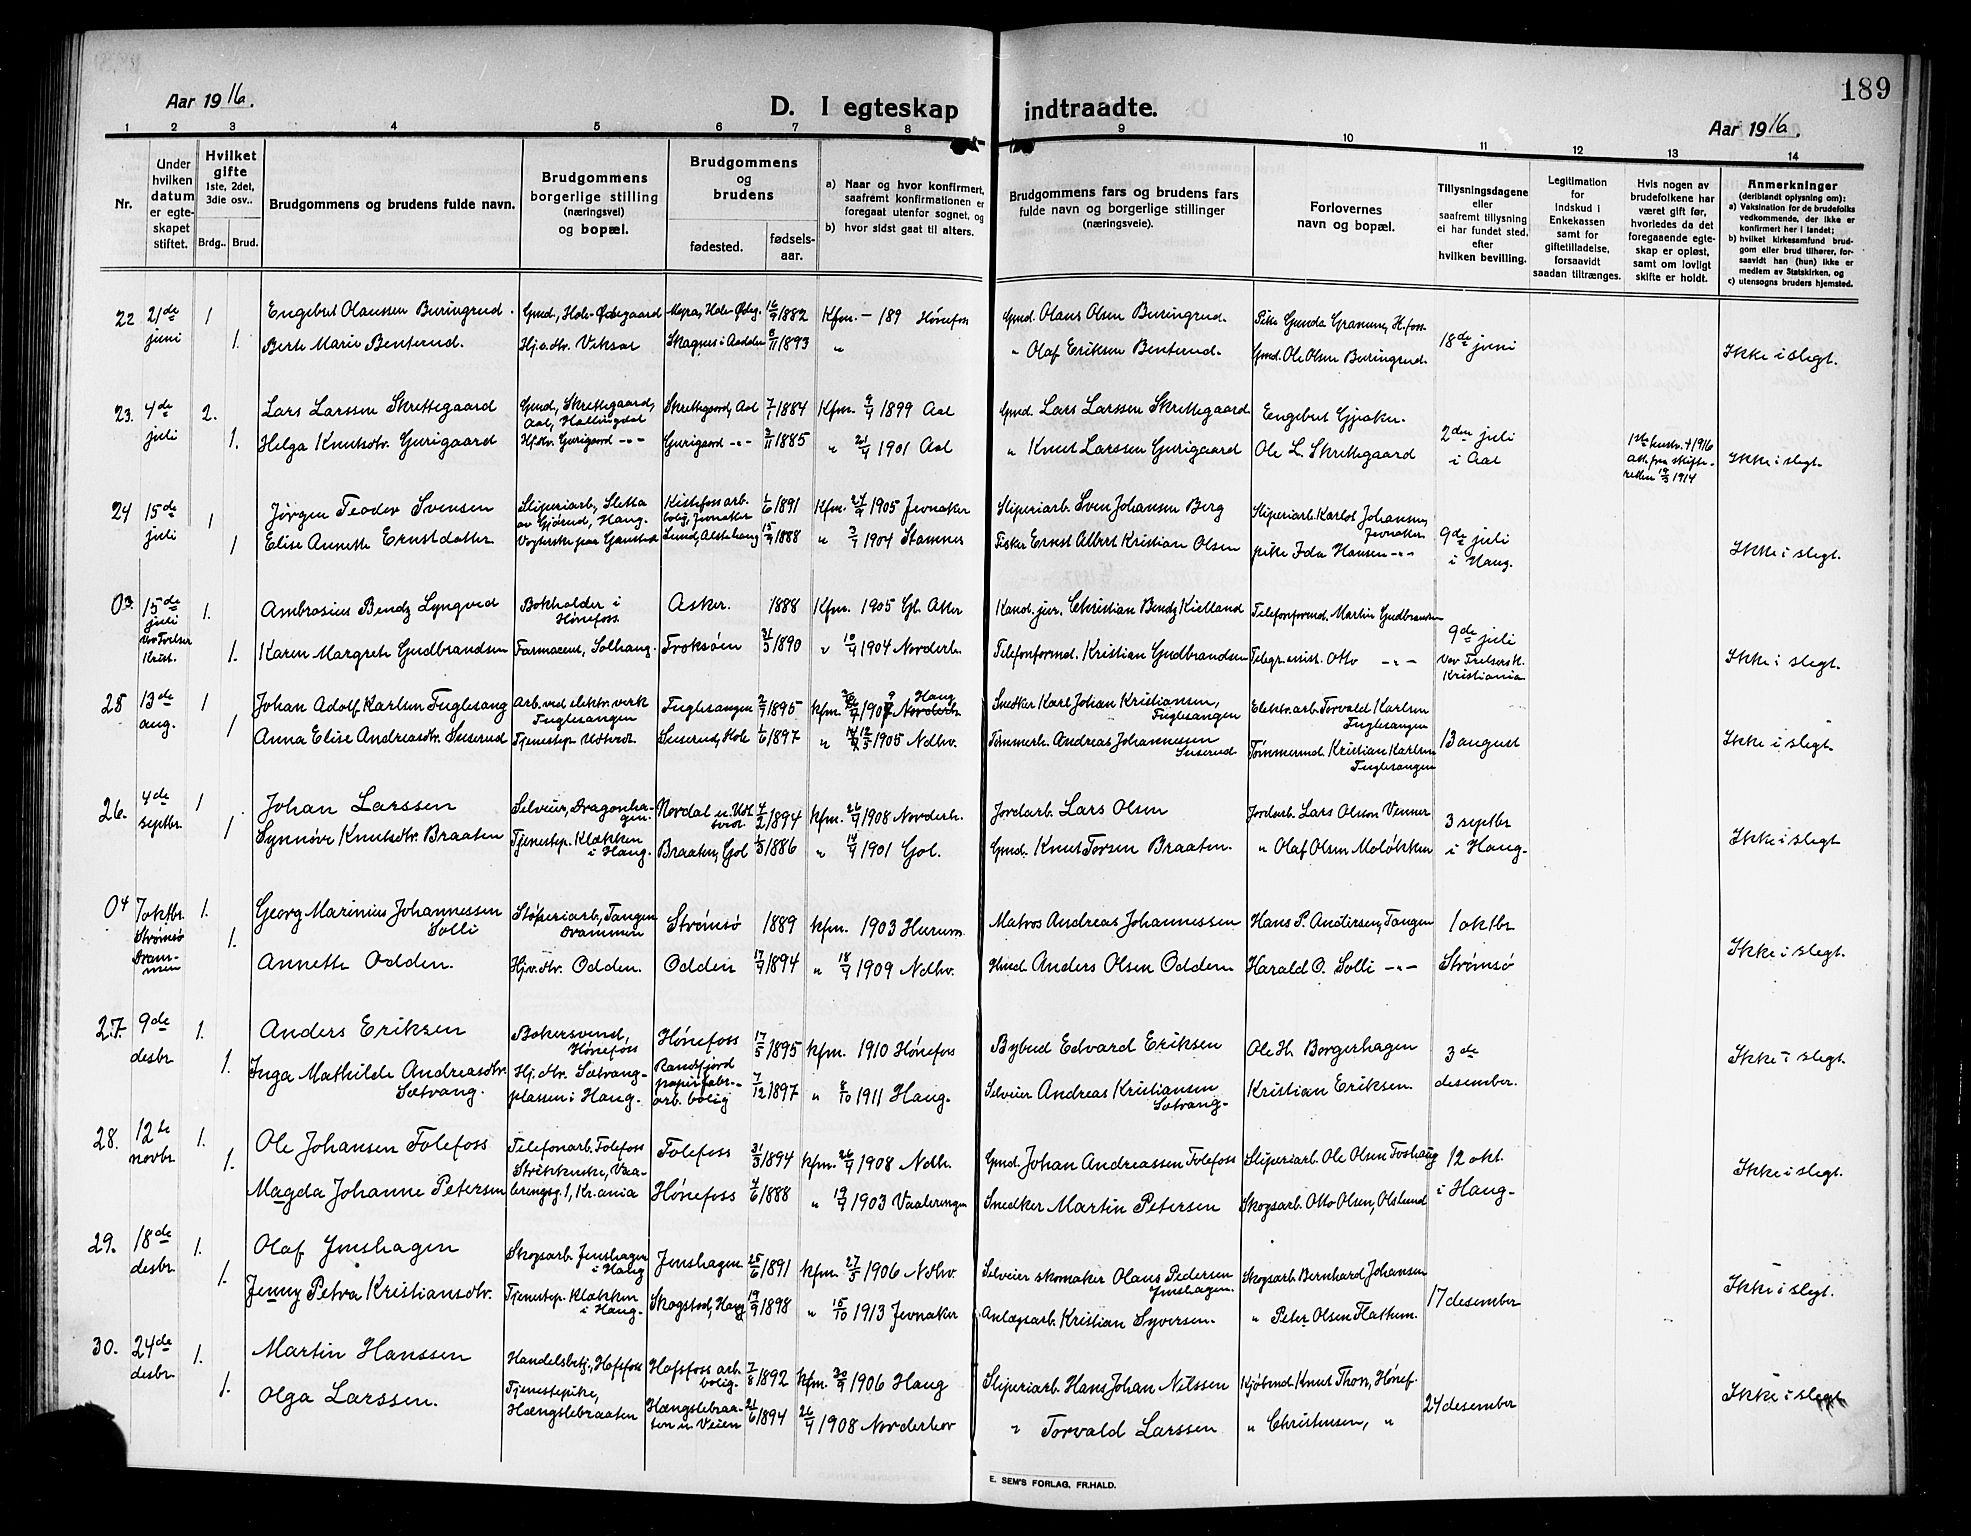 189
Aar 1916.
D. I egteskap indtraadte.
Aar 1916.
1 2 3 4 5 6 7 8 9 10 11 12 13 14
Nr.
Under hvilken datum er egteskapet stiftet.
Hvilket gifte 1ste, 2det, 3die osv..
Brdg.. Brud.
Brudgommens og brudens fulde navn.
Brudgommens borgerlige stilling (næringsvei) og bopæl.
Brudgommens og brudens
fødested.
fødsels-aar.
a) Naar og hvor konfirmert, saafremt konfirmationen er foregaat utenfor sognet, og
b) hvor sidst gaat til alters.
Brudgommens fars og brudens fars fulde navn og borgerlige stillinger (næringsveie).
Forlovernes navn og bopæl.
Tillysningsdagene eller saafremt tillysning ei har fundet sted, efter hvilken bevilling.
Legitimation for Indskud i Enkekassen samt for giftetilladelse, forsaavidt saadan tiltrænges.
Hvis nogen av brudefolkene har været gift før, hvorledes da det foregaaende egteskap er opløst, samt om lovligt skifte er holdt.
Anmerkninger (deriblandt oplysning om):
a) Vaksination for de brudefolks vedkommende, der ikke er konfirmert her i landet;
b) hvilket kirkesamfund brudgom eller brud tilhører, forsaavidt han (hun) ikke er medlem av Statskirken, og
c) utensogns bruders hjemsted.
22 21de juni 1 Engebret Olaussen Buringrud. Gmd, Hole Ødegaard Myra, Hole Ødeg. 16/9 1882 Kfm. - 189 Hønefoss Gmd. Olaus Olsen Buringrud. Pike Gunda Hfoss 18de juni
1. Berte Marie Benterud. Hj.v.dtr. Veksal 8/11 1893 " " Olaf Eriksen Benterud. Gmd. Ole Olsen Buringrud. Ikke i slegt.
23. 4de juli 2. Lars Larssen Skrettegaard Gmd, Skrettegaard, Aal, Hallingdal Skrettegaard, Aal 7/1 1884 Kfm. 9/4 1899 Aal Gmd. Lars Larssen Skrettegaard Engebret Gjeaker. 2den juli i Aal
1. Helga Knutsdtr. Gurigaard Hj.dtr. Gurigaard -"- Gurigaard -"- 3/11 1885 " 21/4 1901 Aal " Knut Larssen Gurigaard Ole L. Skrettegaard 1ste hustr. † 1916 att. fra skifteretten 19/5 1914 Ikke i slegt.
24 15de juli 1 Jørgen Teodor Svensen Sliperiarb, Sletta av Gjørud, Haug. Kistefoss arb. bolig, Jevnaker 1/6 1891 Kfm. 24/9 1905 Jevnaker Sliperiarb. Sven Johansen Berg Sliperiarb. Karlot Johansen, Jevnaker 9de juli i Haug.
1 Elise Annette Ernstdatter Vogterske paa Gaustad Lund, Alstahaug 15/9 1888 " 3/7 1904 Stamnes Fisker Ernst Albert Kristian Olsen pike Ida Hansen -"- Ikke i slegt.
03. 15de juli Vor Frelser Krist. 1. Ambrosius Bendz Lyngved Bokholder i Hønefoss. Asker. 1888 Kfm. 1905 Gl. Aker Kand. jur. Christian Bendz Kielland Telefonformd. Martin Gudbrandsen 9de juli Vor Frelsersk. Kristiania
1. Karen Margrete Gudbrandsen Farmaceut, Solhaug. Troksøen 31/3 1890 " 10/4 1904 Norderh. Telefonformd. Kristian Gudbrandsen Telegr.anist. Otto -"- Ikke i slegt.
25 13de aug. 1 Johan Adolf Karlsen Fuglesang Arb. ved elektr. verk Fuglesangen Fuglesangen 2/9 1895 kfm. 26/9 1909 Haug Norderh. Snedker Karl Johan Kristiansen, Fuglesangen Elektr.arb. Torvald Karlsen Fuglesangen 13 august
1 Anna Elise Andreasdtr. Suserud Tjenestep. Udtvedt Suserud, Hole 1/6 1897 " 1905 Ndhv. Tømmerh. Andreas Johannessen Suserud Tømmermd. Kristian Karlsen Fuglesangen Ikke i slegt.
26. 4de septbr. 1 Johan Larssen Selveier, Dragonhagen. Nordal u. Udtvedt 4/2 1894 kfm. 26/9 1908 Norderh. Jordarb. Lars Olsen Jordarb. Lars Olsen Venner 3 septbr i Haug.
1 Synnøve Knutsdtr. Braaten Tjenestep. Klækken i Haug. Braaten, Gol 1/5 1886 " 14/7 1901 Gol. Gmd. Knut Torsen Braaten. " Olaf Olsen Moløkken Ikke i slegt
04 7oktbr. Strømsø Drammen 1. Georg Marinius Johannessen Solli Støperiarb, Tangen Drammen Strømsø 1889 kfm. 1903 Hurum Matros Andreas Johannessen Hans P. Andersen, Tangen 1 oktbr
1. Annette Odden. Hjv.dtr. Odden. Odden 17/9 1894 " 18/7 1909 Ndhv. Hmd. Anders Olsen Odden Harald O. Solli -"- Strømsø Ikke i slegt.
27. 9de desbr. 1. Anders Eriksen Bakersvend, Hønefoss Hønefoss 17/5 1895 kfm. 1910 Hønefoss Bybud Edvard Eriksen Ole H. Borgerhagen 3de desember.
1. Inga Mathilde Andreasdtr. Sætrang. Hj.dtr. Sætrangplassen i Haug. Randsfjord papirfabr. arb. bolig 7/12 1897 " 8/10 1911 Haug. Selveier Andreas Kristiansen Sætrang. Kristian Eriksen. Ikke i slegt.
28. 12te novbr. 1. Ole Johansen Follefoss Telefonarb. Follefoss Follefoss 31/3 1894 kfm. 26/9 1908 Ndh. Gmd. Johan Andreassen Follefoss Sliperiarb. Ole Olsen Foshaug 12 okt. i Haug.
1. Magda Johanne Petersen Strikkerske, Vaalerengsg. 1, Kr.ania Hønefoss 4/6 1888 " 19/4 1903 Vaalerengen Snedker Martin Petersen Skogsarb. Otto Olsen, Olslund Ikke i slegt.
29. 18de desbr. 1. Olaf Jenshagen Skogsarb. Jenshagen i Haug Jenshagen 25/6 1891 kfm. 27/5 1906 Ndhv. Selveier skomaker Olaus Pedersen Jenshagen. Skogsarb. Bernhard Johansen 17 desember
1. Jenny Petra Kristiansdtr. Tjenestep. Klækken i Haug. Skogstad, Haug 19/9 1898 " 15/10 1913 Jevnaker Anlægsarb. Kristian Syversen. " Peter Olsen Flatkem. Ikke i slegt.
30. 24de desbr. 1. Martin Hanssen Handelsbetj., Hofsfoss Hofsfoss arb. bolig. 7/8 1892 kfm. 30/9 1906 Haug Sliperiarb. Hans Johan Nilssen Kjøbmd. Knut Thon, Hønef. 24 desember
1. Olga Larssen. Tjenestepike, Hængslebraaten Hængslebraaten u. Veien 21/6 1894 " 26/9 1908 Norderhov " Torvald Larssen " Christensen, " Ikke i slegt
E. SEM'S FORLAG, FR.HALD.